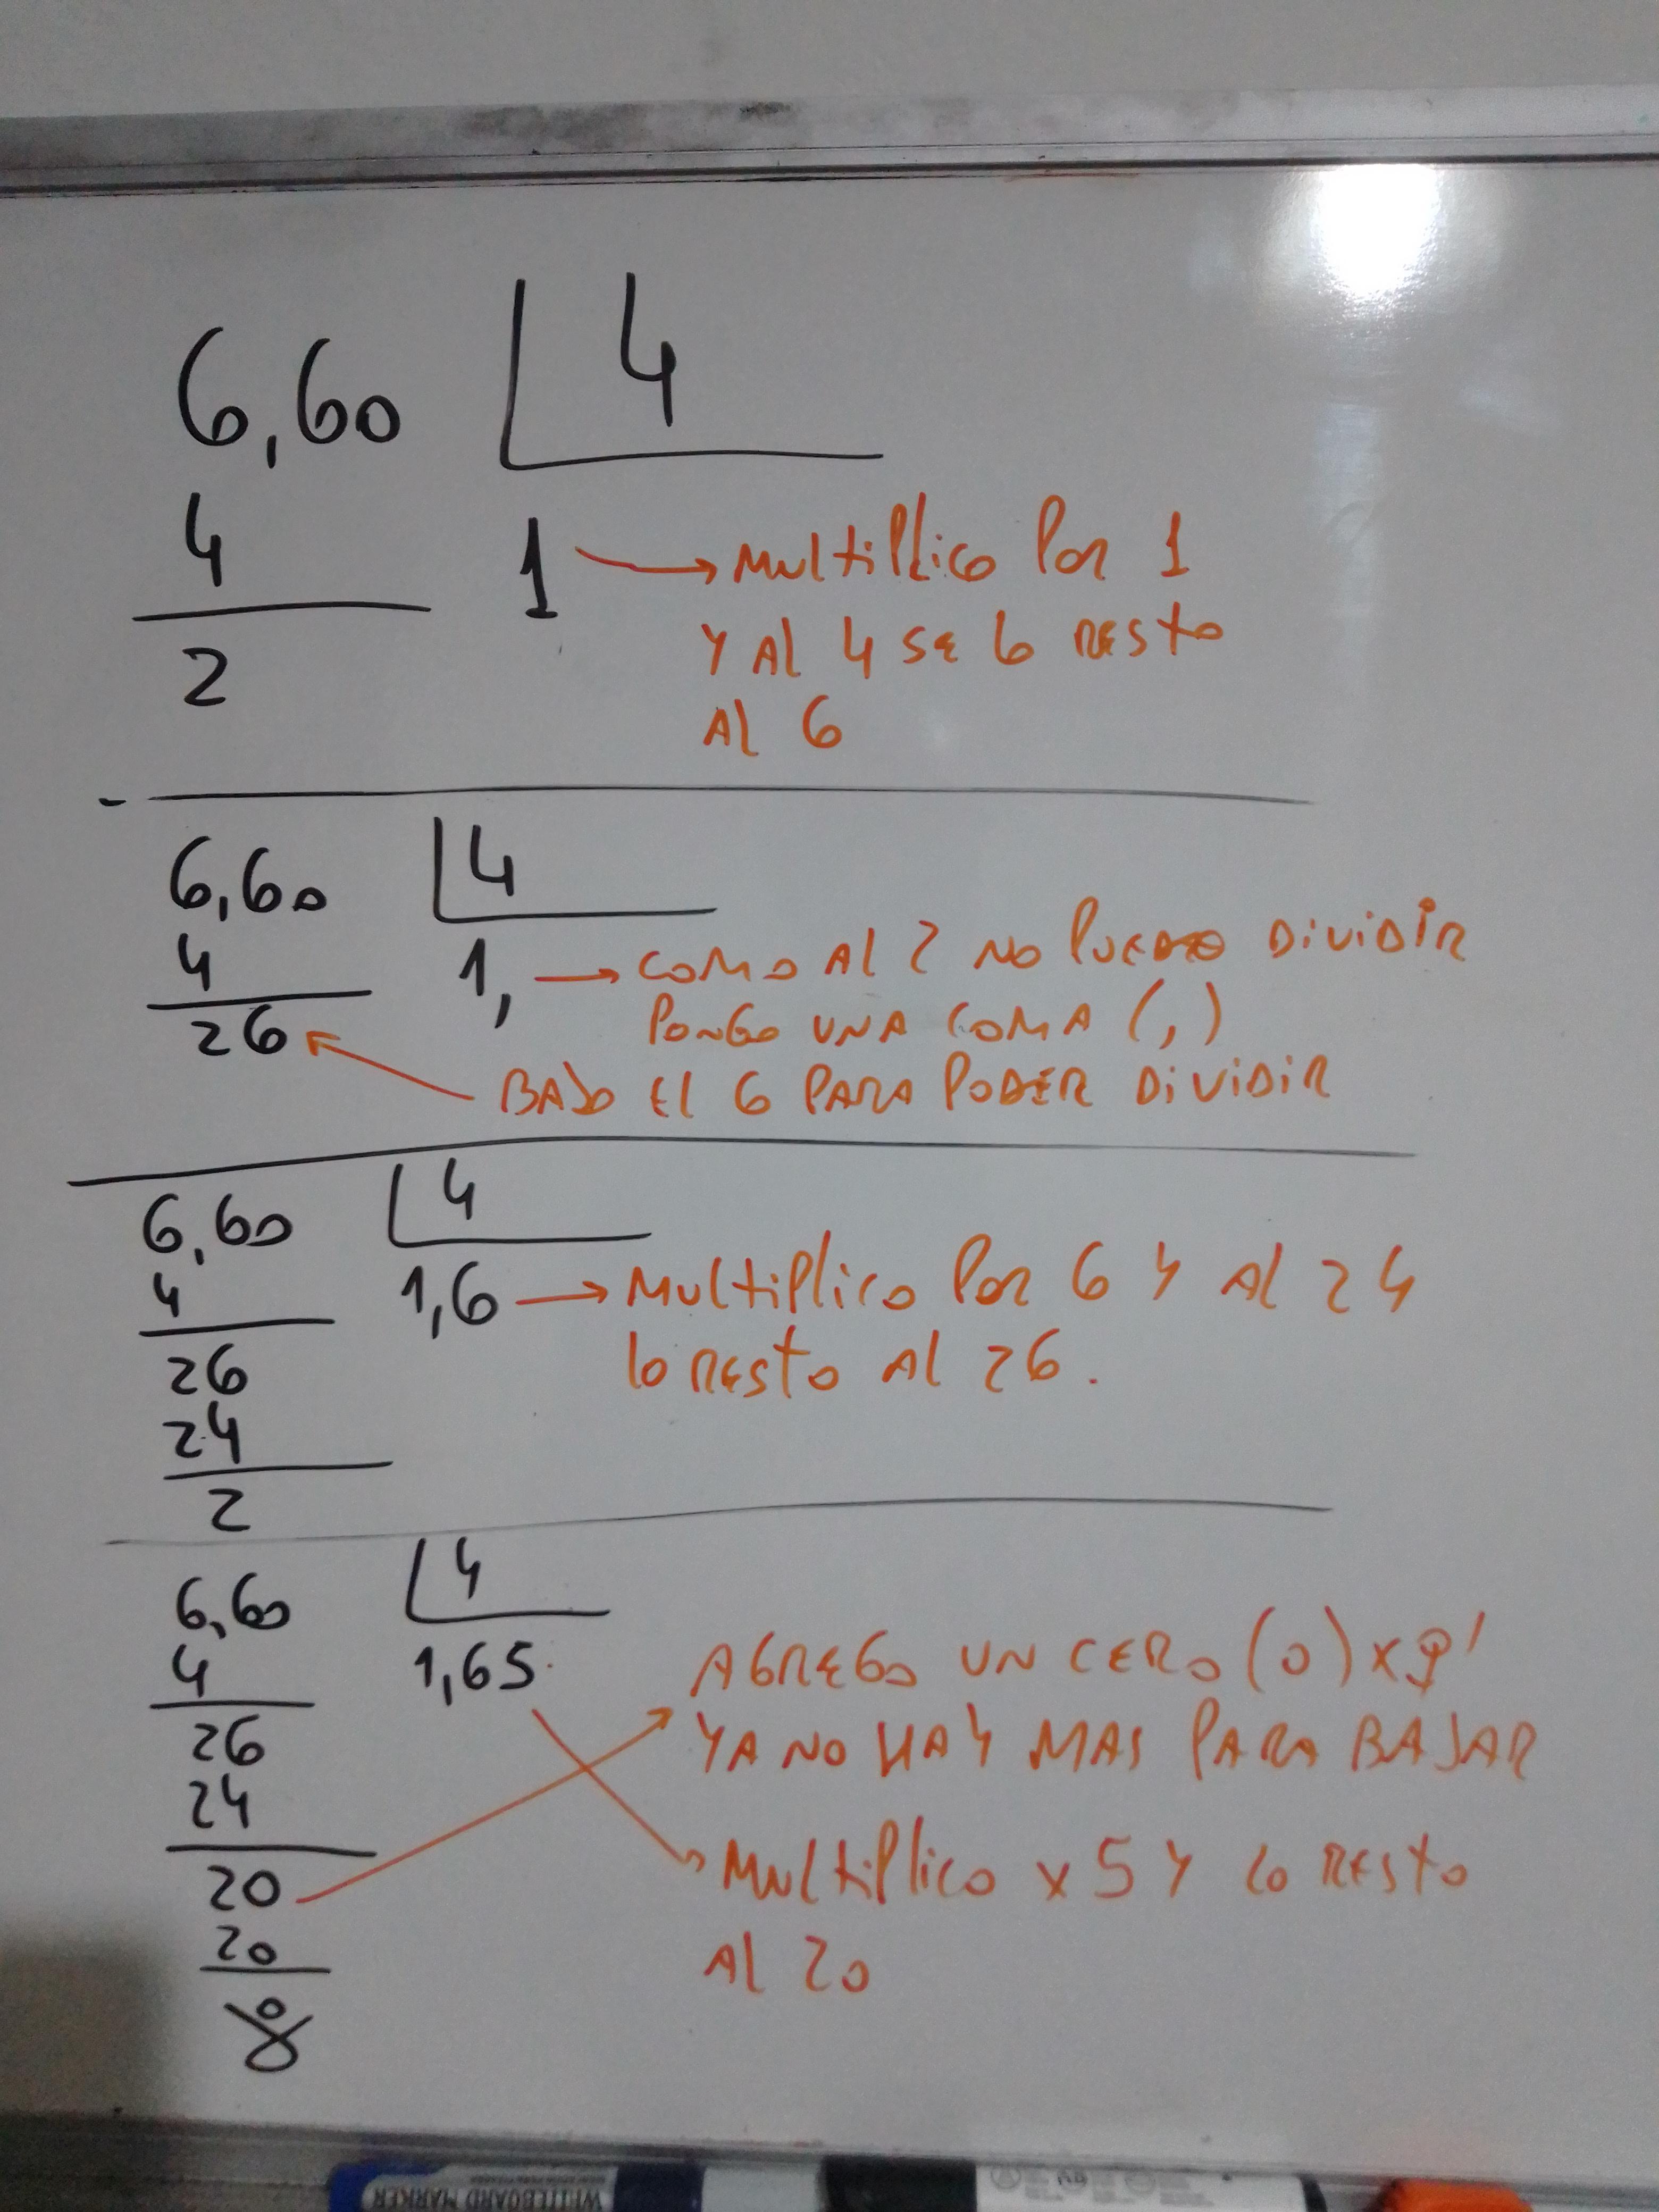 6,60 4
4 1 → Multiplico Por 1
2 Y Al 4 se lo resto
Al 6
6,60 4
4 1, → como Al 2 no Puedo DiviDir
Pongo una coma (,)
26 BAJo El 6 PARA PoDER DiViDiR
6,60 4
4 1,6 → Multiplico Por 6 Y Al 24
26 lo Resto Al 26.
24
2
6,60 4
4 1,65 Agrego un cero (0) x q'
26 YA no HAY MAS PARA BAJAR
24
20 Multiplico x 5 Y lo Resto
20 Al 20
0